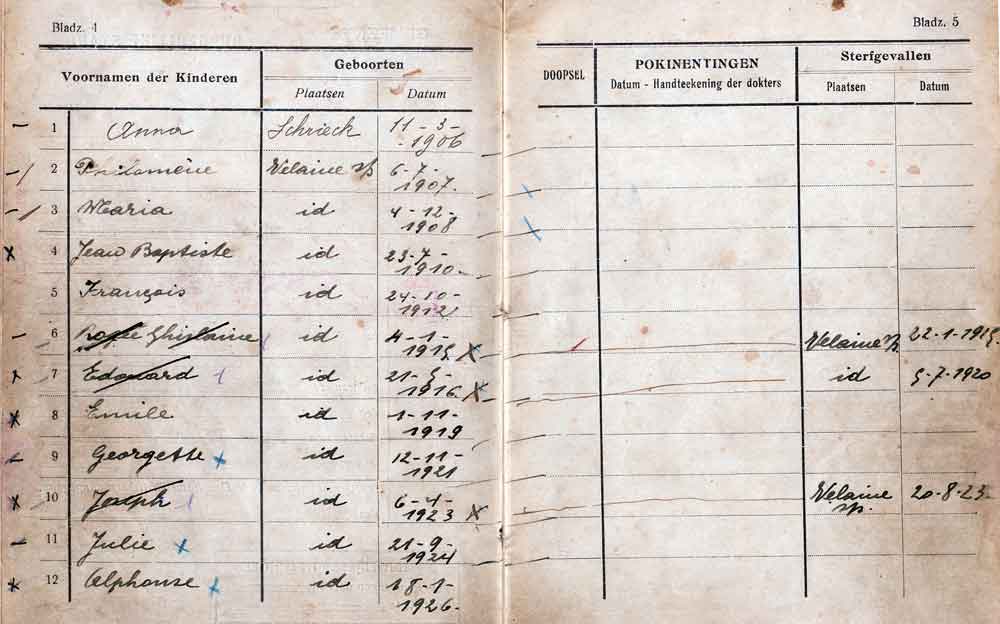 Bladz. 4
Voornamen der Kinderen
Geboorten
Plaatsen Datum
1 Anna Schrieck 11-3-1906
2 Philomène Velaine s/s 6-7-1907.
3 Maria id 4-12-1908
4 Jean Baptiste id 23-7-1910-
5 François id 24-10-1912
6 Ghislaine id 4-1-1915
7 Edouard id 21-5-1916
8 Emile id 1-11-1919
9 Georgette id 12-11-1921
10 Joseph id 6-4-1923
11 Julie id 21-9-1924
12 Alphonse id 18-1-1926-
Bladz. 5
DOOPSEL
POKINENTINGEN
Datum - Handteekening der dokters
Sterfgevallen
Plaatsen Datum
Velaine 22-1-1915.
id 5-7-1920
Velaine 20-8-23